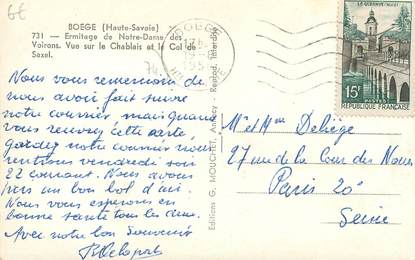 6€
BOEGE (Haute-Savoie)
731 — Ermitage de Notre-Dame des
Voirons. Vue sur le Chablais et le Col de
Saxel.
Nous vous remercions de
nous avoir fait suivre
notre courrier, mais quand
vous recevrez cette carte,
gardez notre courrier nous
rentrons vendredi soir
22 courant. Nous avons
pris un bon bol d'air.
Nous vous espérons en
bonne santé tous les deux.
Avec notre bon souvenir
Editions G. MOUCHET, Annecy - Reprod. Interdite
BOEGE
LE QUESNOY
15F
POSTES
REPUBLIQUE FRANÇAISE
Mr et Mme Deliège
27 rue de la Cour des Noues
Paris 20e
Seine